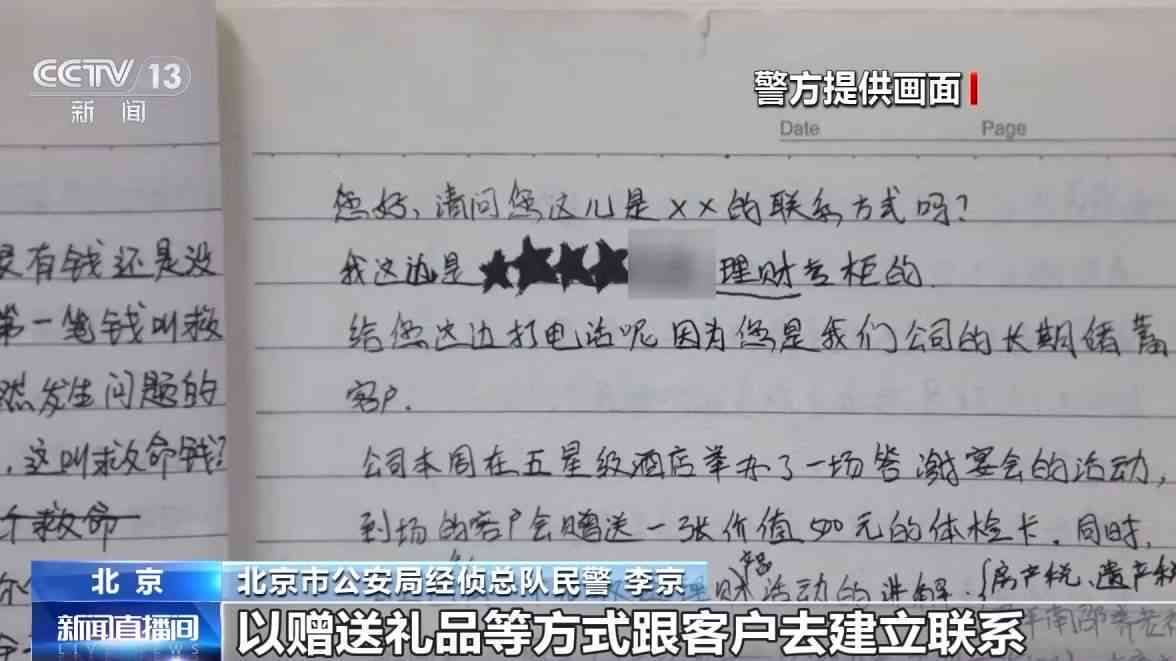 CCTV 13
新闻
警方提供画面
Date Page
您好、请问您这儿是××的联系方式吗?
我这边是 理财专柜的
给您这边打电话呢因为您是我们公司的长期储蓄
客户.
公司本周在五星级酒店举办了一场答谢宴会的活动,
到场的客户会赠送一张价值500元的体检卡.同时,
活动的讲解.(房产税、遗产税
有钱还是没
第一笔钱叫救
然发生问题的
,这叫救命钱?
个救命
北京
北京市公安局经侦总队民警 李京
新闻直播间
LIVE NEWS
以赠送礼品等方式跟客户去建立联系